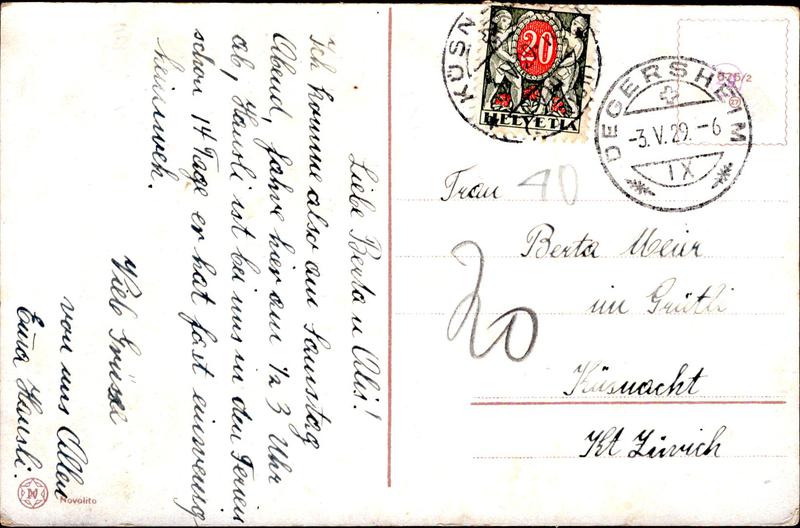 Liebe Berta u Olis!
Ich komme also am Samstag
Abend, fahre hier am ½ 3 Uhr
ab, Hansli ist bei uns in den Ferien
schon 14 Tage er hat fast einwenig
heimweh.
Viele Grüsse
von uns Allen
Hansli.
Novolito
KÜSN
20
HELVETIA
DEGERSHEIM
-3.V.29.-6
IX
575/2
27
40
20
Frau
Berta Meier
im Grütli
Küsnacht
Kt Zürich